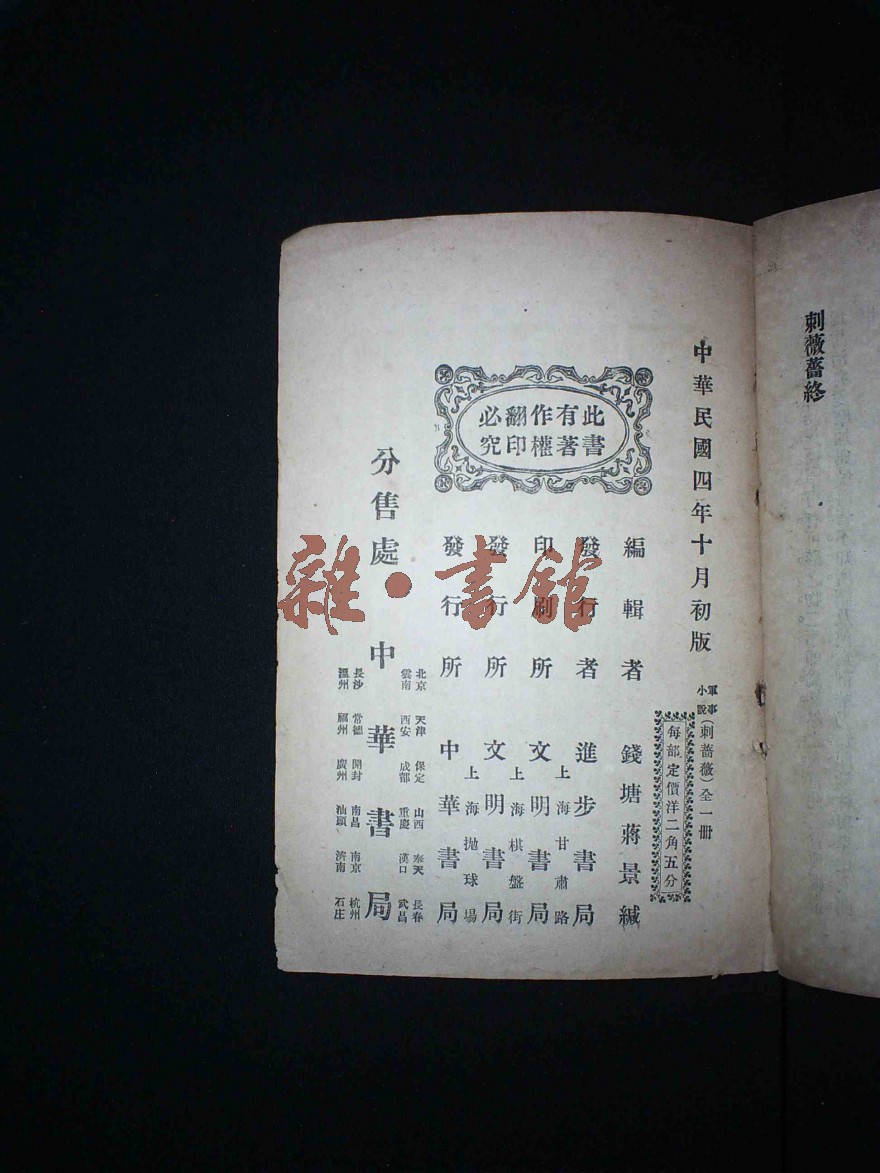 刺薇薔終
中華民國四年十月初版
軍事小說（刺薔薇）全一册
每部定價洋二角五分
此書有著作權翻印必究
編輯者　錢塘蔣景緘
發行者　進步書局
上海甘肅路
印刷所　文明書局
上海棋盤街
發行所　文明書局
上海拋球場
發行所　中華書局
分售處　中華書局
北京　天津　保定　山西　奉天　長春
雲南　西安　成都　重慶　漢口　武昌
長沙　常德　開封　南昌　南京　杭州
溫州　福州　廣州　汕頭　濟南　石庄
雜·書館